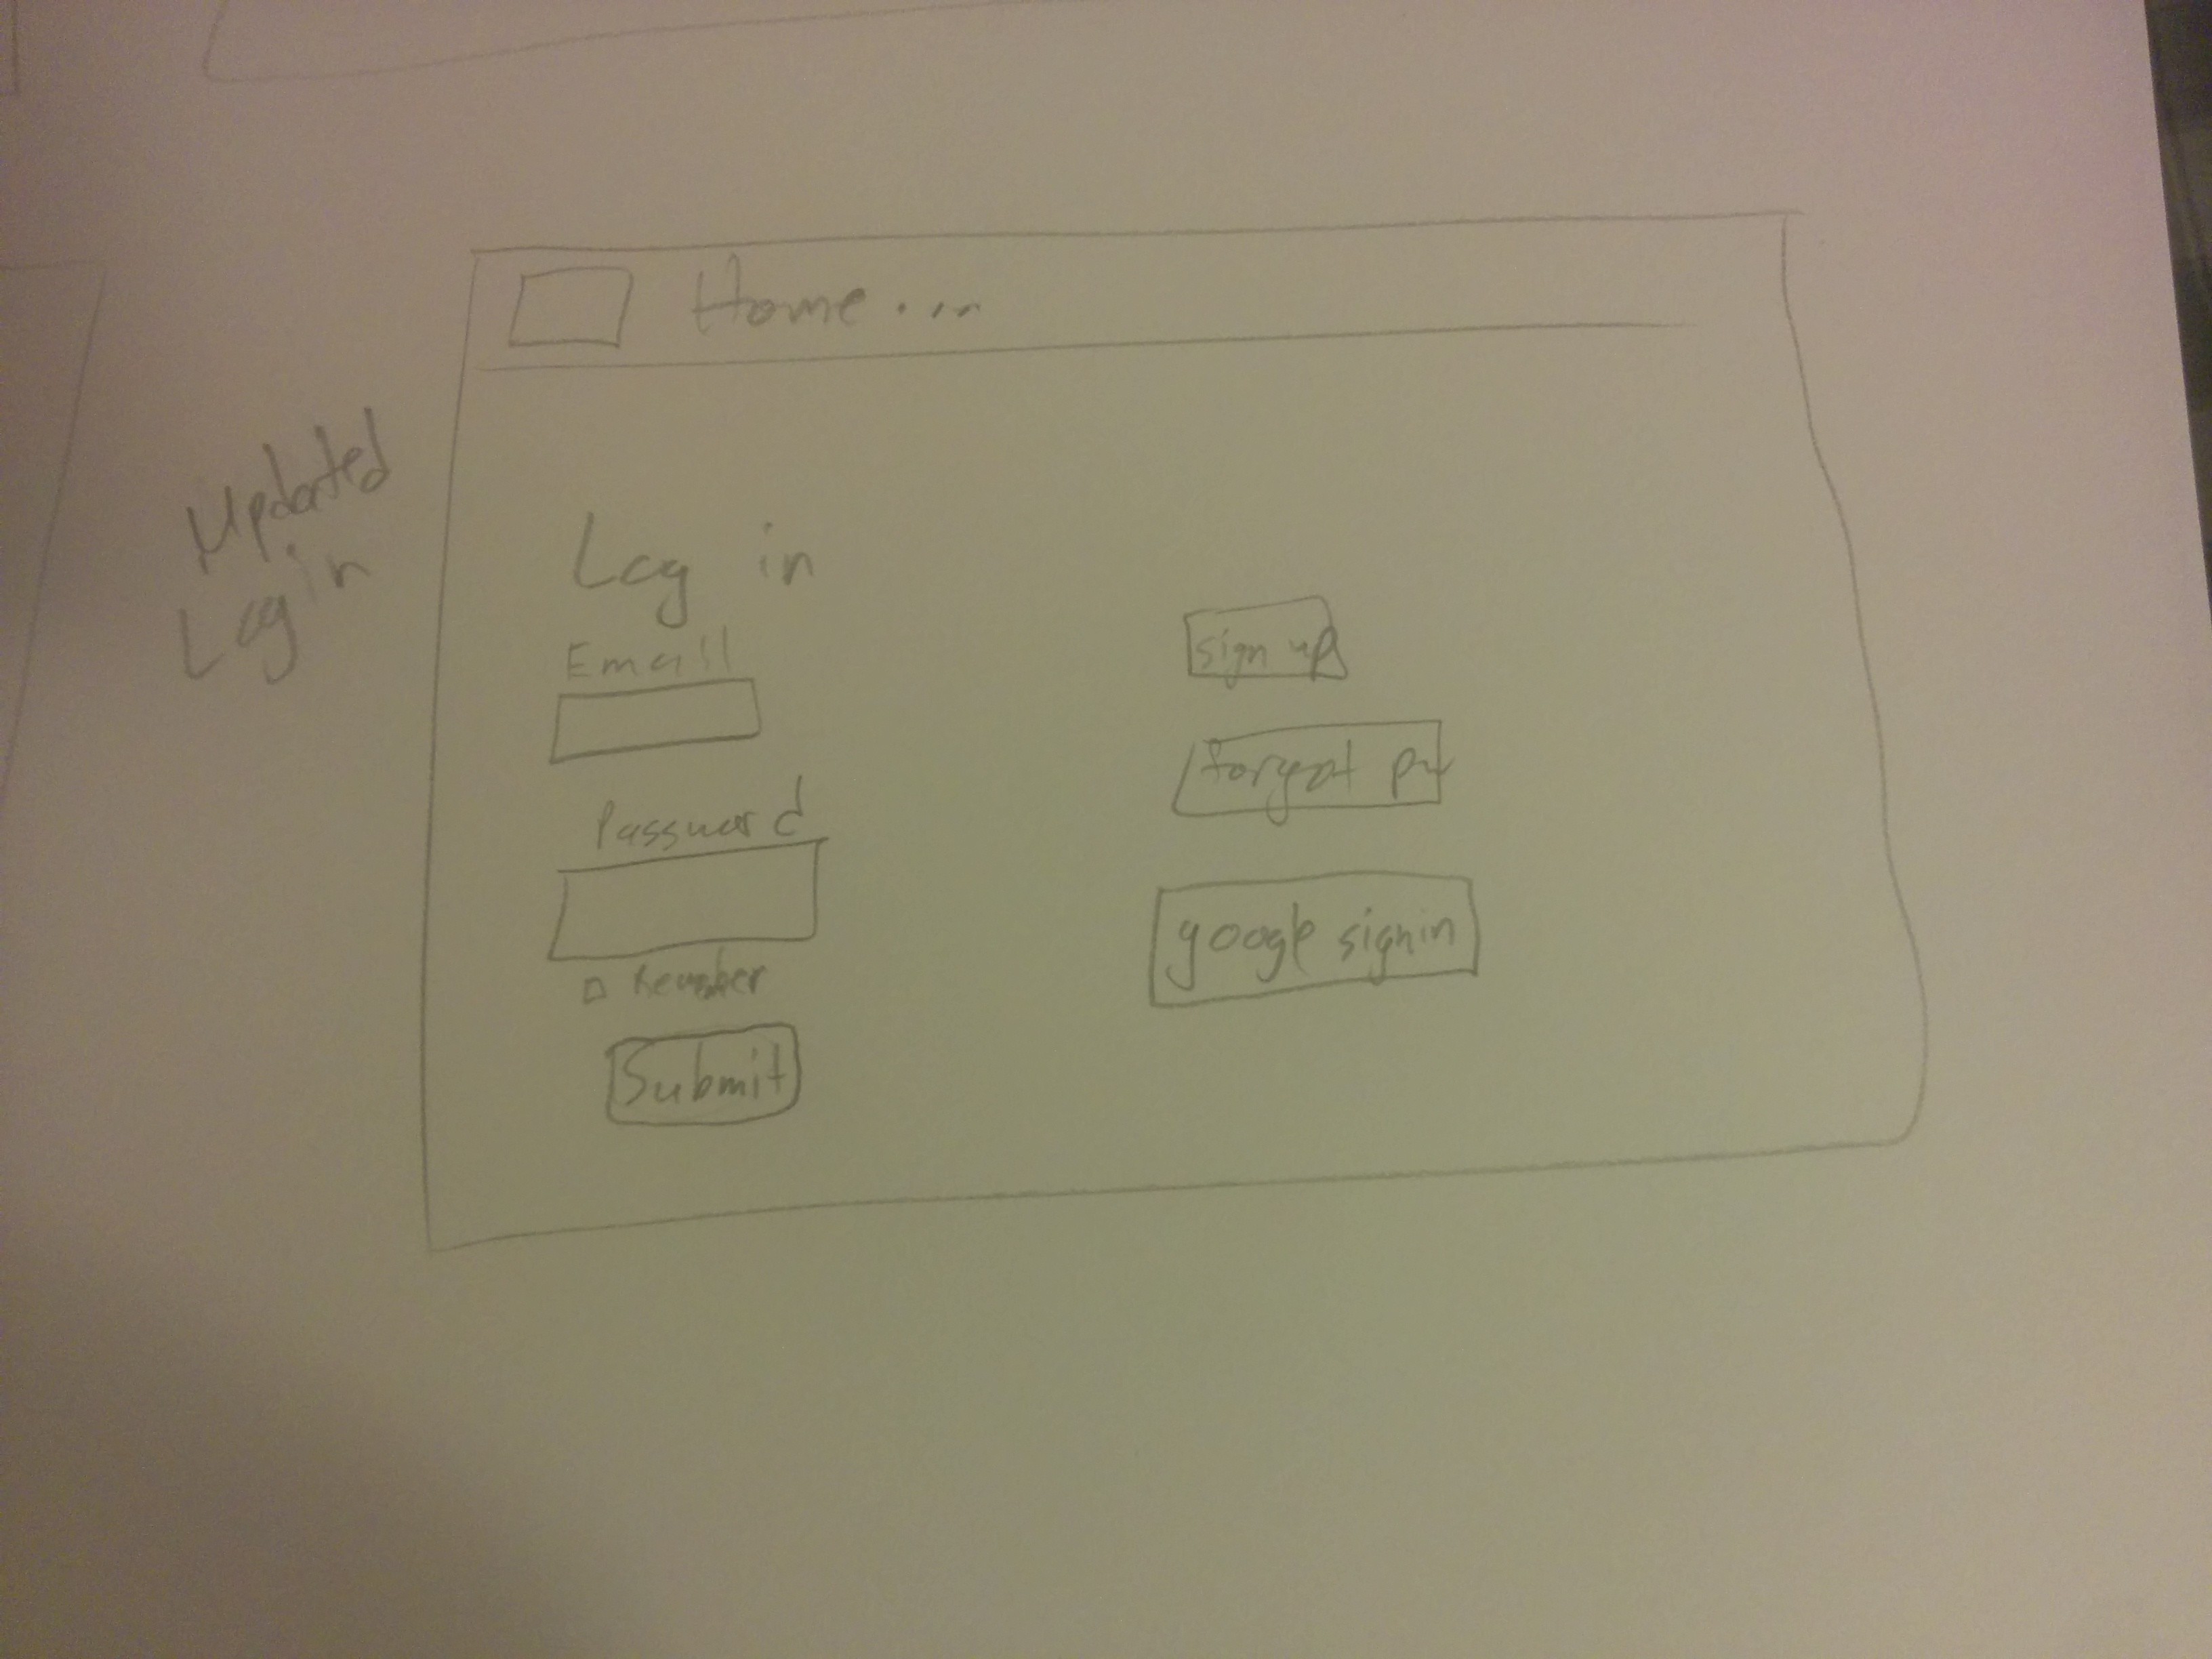 Home...
Updated
Log in
Log in
Email
Password
Remember
Submit
sign up
forgot pw
google signin